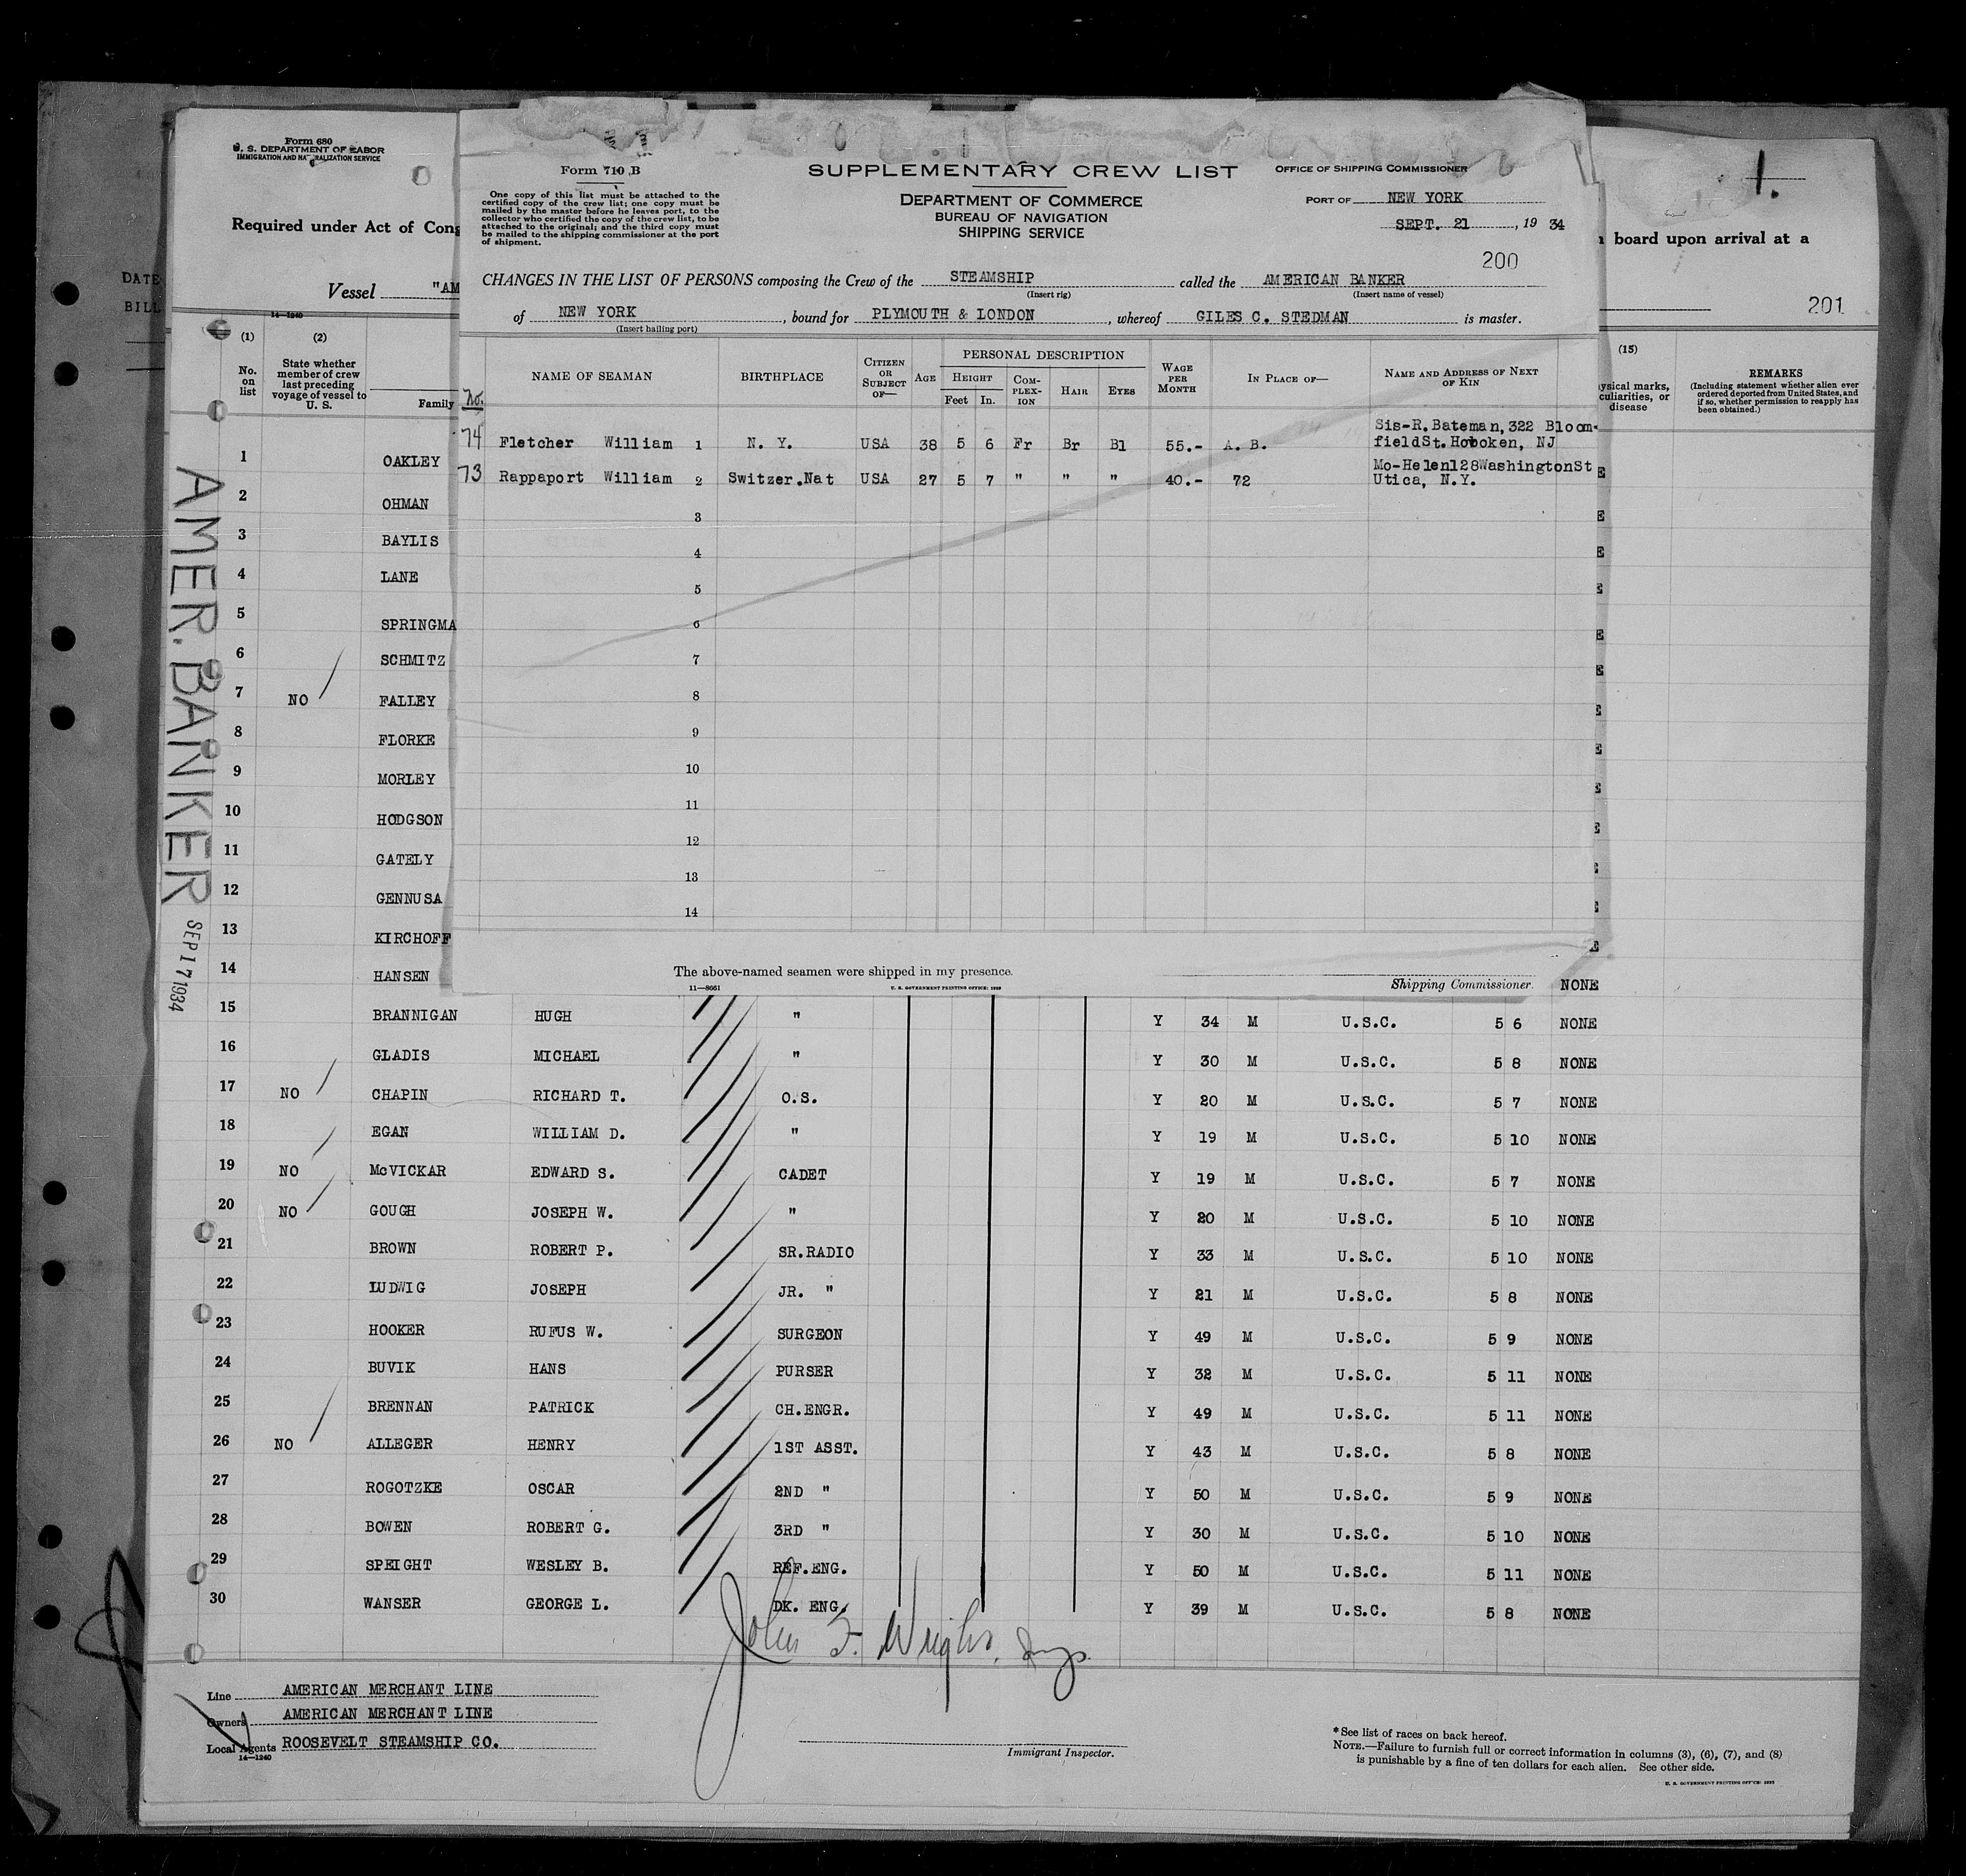 Form 680
U. S. DEPARTMENT OF LABOR
IMMIGRATION AND NATURALIZATION SERVICE
Required under Act of Cong
Vessel "AM
14—1240
(1) (2)
No. on list
State whether member of crew last preceding voyage of vessel to U. S.
Family
DATE
BILL
AMER. BANKER
SEP 17 1934
Form 710 B
One copy of this list must be attached to the
certified copy of the crew list; one copy must be
mailed by the master before he leaves port, to the
collector who certified the copy of the crew list, to be
attached to the original; and the third copy must
be mailed to the shipping commissioner at the port
of shipment.
SUPPLEMENTARY CREW LIST
DEPARTMENT OF COMMERCE
BUREAU OF NAVIGATION
SHIPPING SERVICE
OFFICE OF SHIPPING COMMISSIONER
PORT OF NEW YORK
SEPT. 21, 19 34
200
CHANGES IN THE LIST OF PERSONS composing the Crew of the STEAMSHIP called the AMERICAN BANKER
(Insert rig) (Insert name of vessel)
of NEW YORK, bound for PLYMOUTH & LONDON, whereof GILES C. STEDMAN is master.
(Insert hailing port)
No. NAME OF SEAMAN BIRTHPLACE CITIZEN OR SUBJECT OF— AGE PERSONAL DESCRIPTION HEIGHT Feet In. COMPLEXION HAIR EYES WAGE PER MONTH IN PLACE OF— NAME AND ADDRESS OF NEXT OF KIN
74 Fletcher William 1 N. Y. USA 38 5 6 Fr Br Bl 55.- A. B. Sis-R.Bateman,322 Bloom-
fieldSt.Hoboken, NJ
73 Rappaport William 2 Switzer.Nat USA 27 5 7 " " " 40.- 72 Mo-Helen128WashingtonSt
Utica, N.Y.
3
4
5
6
7
8
9
10
11
12
13
14
The above-named seamen were shipped in my presence.
11—8661
U. S. GOVERNMENT PRINTING OFFICE: 1929
Shipping Commissioner.
1.
board upon arrival at a
201
(15)
ysical marks,
culiarities, or
disease
REMARKS
(Including statement whether alien ever
ordered deported from United States, and
if so, whether permission to reapply has
been obtained.)
1 OAKLEY
2 OHMAN
3 BAYLIS
4 LANE
5 SPRINGMA
6 SCHMITZ
7 NO FALLEY
8 FLORKE
9 MORLEY
10 HODGSON
11 GATELY
12 GENNUSA
13 KIRCHOFF
14 HANSEN NONE
15 BRANNIGAN HUGH " Y 34 M U.S.C. 5 6 NONE
16 GLADIS MICHAEL " Y 30 M U.S.C. 5 8 NONE
17 NO CHAPIN RICHARD T. O.S. Y 20 M U.S.C. 5 7 NONE
18 EGAN WILLIAM D. " Y 19 M U.S.C. 5 10 NONE
19 NO McVICKAR EDWARD S. CADET Y 19 M U.S.C. 5 7 NONE
20 NO GOUGH JOSEPH W. " Y 20 M U.S.C. 5 10 NONE
21 BROWN ROBERT P. SR.RADIO Y 33 M U.S.C. 5 10 NONE
22 LUDWIG JOSEPH JR. " Y 21 M U.S.C. 5 8 NONE
23 HOOKER RUFUS W. SURGEON Y 49 M U.S.C. 5 9 NONE
24 BUVIK HANS PURSER Y 32 M U.S.C. 5 11 NONE
25 BRENNAN PATRICK CH.ENGR. Y 49 M U.S.C. 5 11 NONE
26 NO ALLEGER HENRY 1ST ASST. Y 43 M U.S.C. 5 8 NONE
27 ROGOTZKE OSCAR 2ND " Y 50 M U.S.C. 5 9 NONE
28 BOWEN ROBERT G. 3RD " Y 30 M U.S.C. 5 10 NONE
29 SPEIGHT WESLEY B. REF.ENG. Y 50 M U.S.C. 5 11 NONE
30 WANSER GEORGE L. DK. ENG. Y 39 M U.S.C. 5 8 NONE
John F. Wright, Insp.
Line AMERICAN MERCHANT LINE
Owners AMERICAN MERCHANT LINE
Local Agents ROOSEVELT STEAMSHIP CO.
14—1240
Immigrant Inspector.
*See list of races on back hereof.
NOTE.—Failure to furnish full or correct information in columns (3), (6), (7), and (8)
is punishable by a fine of ten dollars for each alien. See other side.
U. S. GOVERNMENT PRINTING OFFICE: 1932